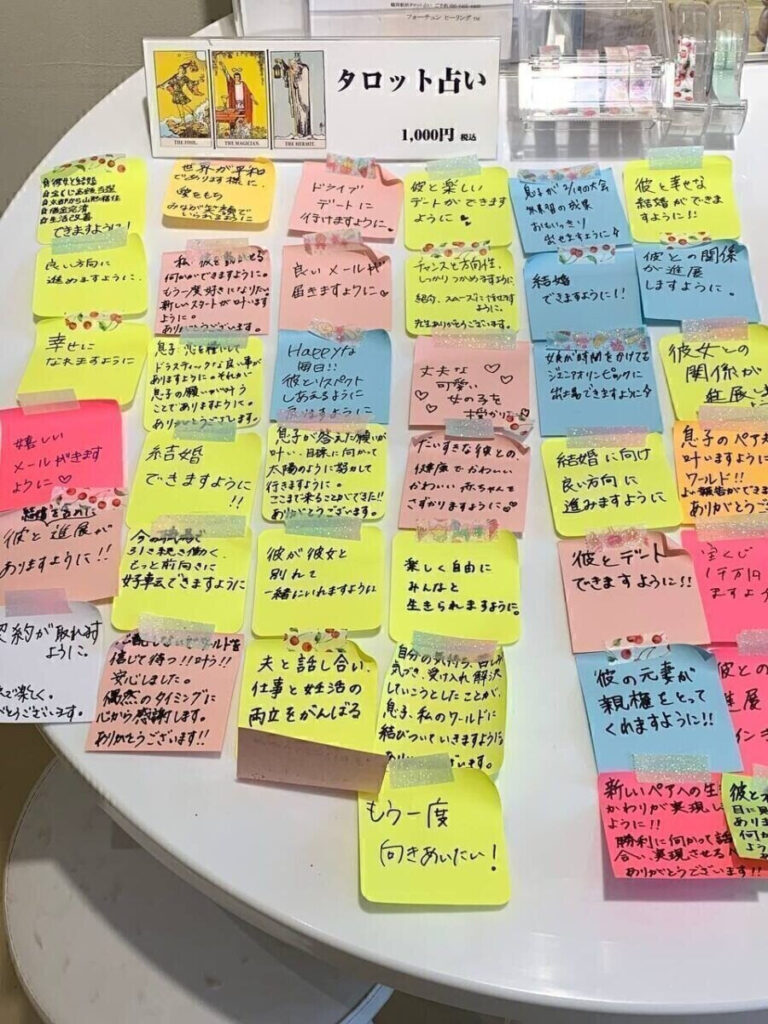 フォーチュン ヒーリング
タロット占い
1,000円 税込
THE FOOL.
THE MAGICIAN.
THE HERMIT.
できますように!
世界が平和
であります様に.
愛をもち
みなが笑顔で
いられますように
ドライブ
デートに
行けますように
彼と楽しい
デートができます
ように
息子が3/19の大会
無練習の成果
おもいっきり
出せますように
彼と幸せな
結婚ができま
すように!!
良い方向に
進めますように.
私、彼を
何かができますように。
もう一度好きになりたい
新しいスタートが叶います
ように。
ありがとうございます。
良いメールが
届きますように
チャンスと方向性、
しっかりつかめますように
先生ありがとうございます。
結婚
できますように!!
彼との関係
が進展
しますように.
幸せに
なれますように
息子
ドラスティックな良い事が
ありますように。それが
息子の願いが叶う
ことでありますように。
ありがとうございます。
Happyな
毎日!!
彼とリスペクト
しあえるように
丈夫な
可愛い
女の子を
授かりに
時間をかけても
ジュニアオリンピックに
出場できますように
彼女との
関係が
嬉しい
メールがきます
ように
結婚
できますように
!!
息子が答えた願いが
叶い、目標に向かって
太陽のように努力して
行きますように。
ここまで来ることができた!!
ありがとうございます。
だいすきな彼との
健康でかわいい
かわいい赤ちゃんを
さずかりますように
結婚に向け
良い方向に
進みますように
息子のペア
叶いますように
ワールド!!
よい報告ができま
ありがとうござ
結婚を含めて
彼と進展が
ありますように!!
今の
引き続き働く、
もっと前向きに
好転できますように
彼が彼女と
別れて
一緒にいれますように
楽しく自由に
みんなと
生きられますように。
彼とデート
できますように!!
宝くじ
1千万円
ますよう
契約が取れます
ように。
で楽しく。
とうございます。
信じて待つ!!叶う!!
安心しました。
偶然のタイミングに
心から感謝します。
ありがとうございます!!
夫と話し合い、
仕事と妊活の
両立をがんばる
自分の気持ち、
気づき、受け入れ解決
していこうとしたことが、
息子、私のワールドに
結びついていきますように
ありがとうございます。
彼の元妻が
親権をとって
くれますように!!
彼との
進展
もう一度
向きあいたい!
新しいペアへの生
かわりが実現し
ように!!
勝利に向かって話
合い、実現させる
ありがとうございます!!